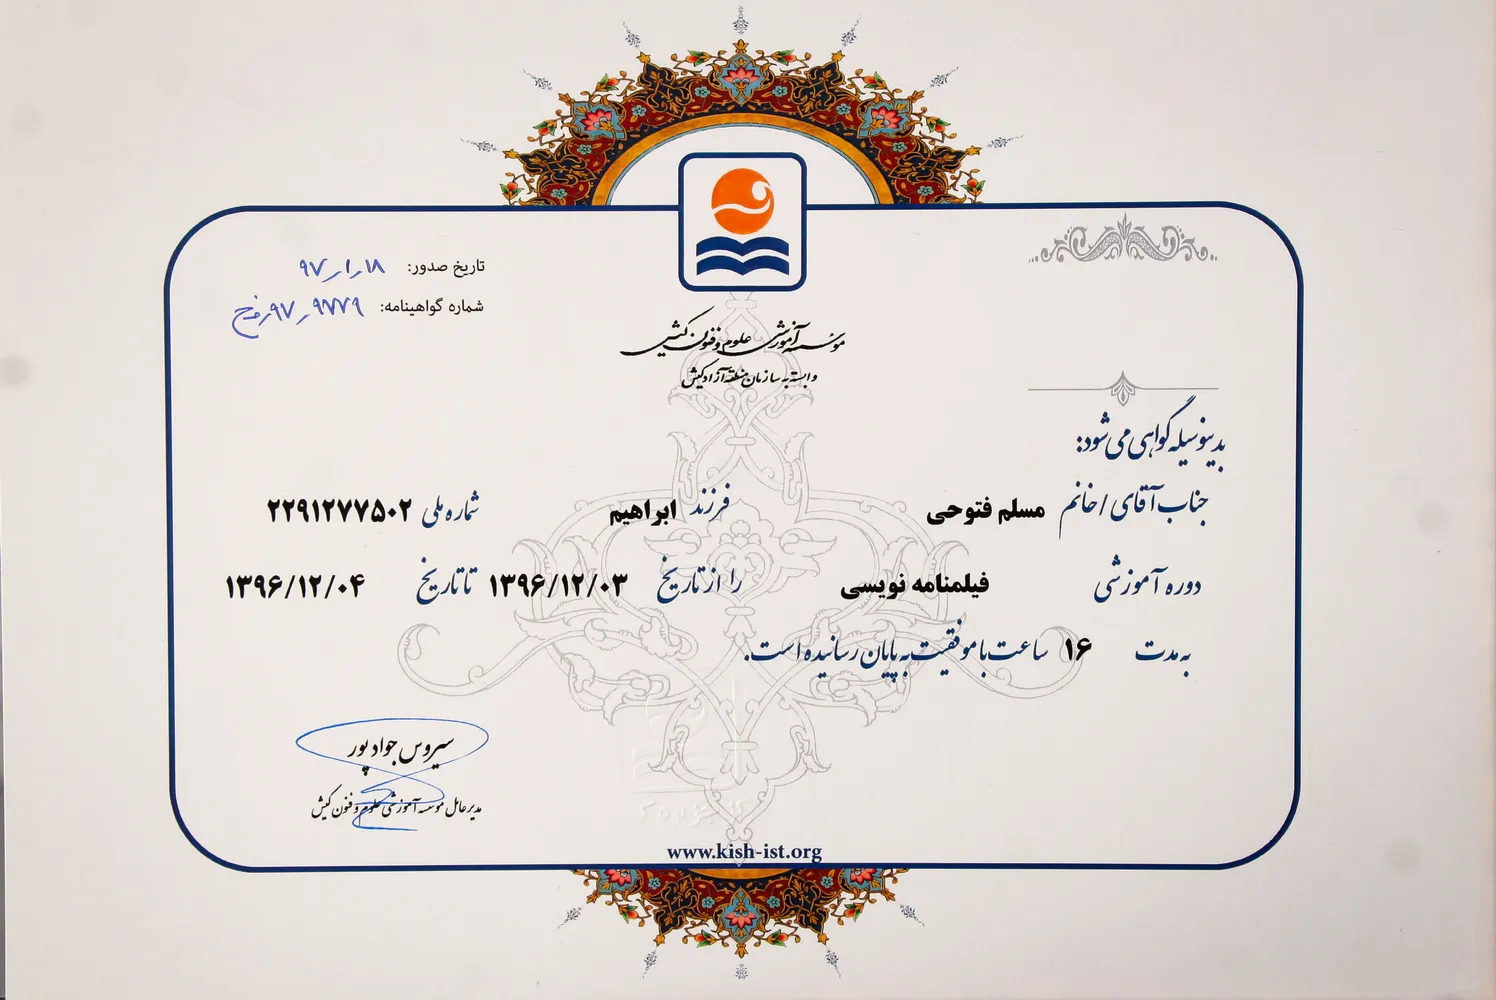 تاریخ صدور: ۹۷/۱/۱۸
شماره گواهینامه: ۹۷/۹۷۷۹/
موسسه آموزشی علوم و فنون کیش
وابسته به سازمان منطقه آزاد کیش
بدینوسیله گواهی می شود:
جناب آقای / خانم مسلم فتوحی فرزند ابراهیم شماره ملی ۲۲۹۱۲۷۷۵۰۲
دوره آموزشی فیلمنامه نویسی را از تاریخ ۱۳۹۶/۱۲/۰۳ تا تاریخ ۱۳۹۶/۱۲/۰۴
به مدت ۱۶ ساعت با موفقیت به پایان رسانیده است.
سیروس جوادپور
مدیرعامل موسسه آموزشی علوم و فنون کیش
www.kish-ist.org